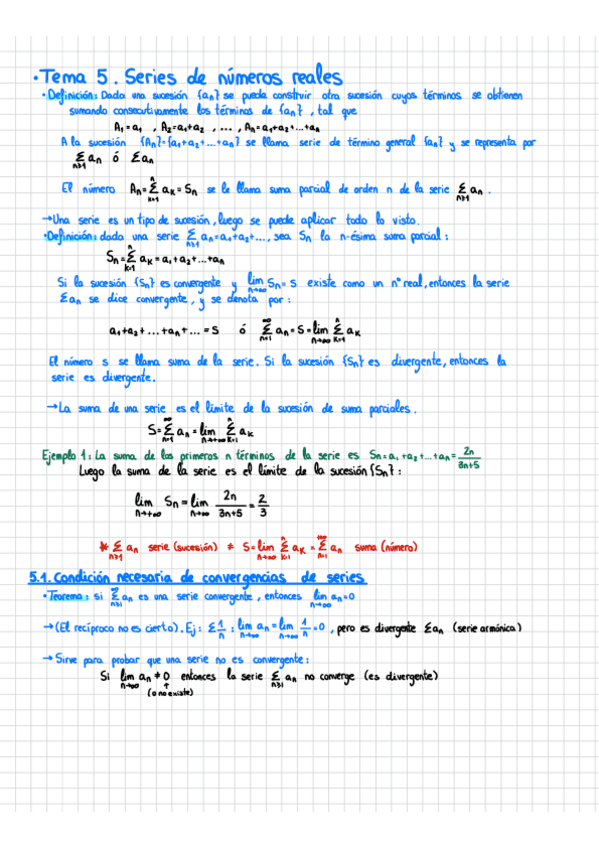 ·Tema 5. Series de números reales
·Definición: Dada una sucesión {aₙ} se puede construir otra sucesión cuyos términos se obtienen
sumando consecutivamente los términos de {aₙ}, tal que
A₁=a₁ , A₂=a₁+a₂ , ... , Aₙ=a₁+a₂+...+aₙ
A la sucesión {Aₙ}={a₁+a₂+...+aₙ} se llama serie de término general {aₙ} y se representa por
∑_{n≥1} aₙ ó ∑aₙ
El número Aₙ=∑_{k=1}^{n} aₖ=Sₙ se le llama suma parcial de orden n de la serie ∑_{n≥1} aₙ.
→Una serie es un tipo de sucesión, luego se puede aplicar todo lo visto.
·Definición: dada una serie ∑_{n≥1} aₙ=a₁+a₂+..., sea Sₙ la n-ésima suma parcial:
Sₙ=∑_{k=1}^{n} aₖ=a₁+a₂+...+aₙ
Si la sucesión {Sₙ} es convergente y lim_{n→∞} Sₙ=s existe como un nº real, entonces la serie
∑aₙ se dice convergente, y se denota por:
a₁+a₂+...+aₙ+...=S ó ∑_{n=1}^{∞} aₙ=S=lim_{n→∞} ∑_{k=1}^{n} aₖ
El número s se llama suma de la serie. Si la sucesión {Sₙ} es divergente, entonces la
serie es divergente.
→La suma de una serie es el límite de la sucesión de suma parciales.
S=∑_{n=1}^{∞} aₙ=lim_{n→+∞} ∑_{k=1}^{n} aₖ
Ejemplo 1: La suma de los primeros n términos de la serie es Sₙ=a₁+a₂+...+aₙ=2n/(3n+5)
Luego la suma de la serie es el límite de la sucesión {Sₙ}:
lim_{n→+∞} Sₙ=lim_{n→∞} 2n/(3n+5)=2/3
* ∑_{n≥1} aₙ serie (sucesión) ≠ S=lim_{n→∞} ∑_{k=1}^{n} aₖ=∑_{n=1}^{+∞} aₙ suma (número)
5.1. Condición necesaria de convergencias de series
·Teorema: si ∑_{n≥1}^{∞} aₙ es una serie convergente, entonces lim_{n→∞} aₙ=0
→(El recíproco no es cierto). Ej: ∑1/n : lim_{n→∞} aₙ=lim_{n→∞} 1/n=0, pero es divergente ∑aₙ (serie armónica)
→Sirve para probar que una serie no es convergente:
Si lim_{n→∞} aₙ≠0 entonces la serie ∑_{n≥1} aₙ no converge (es divergente)
↑
(o no existe)